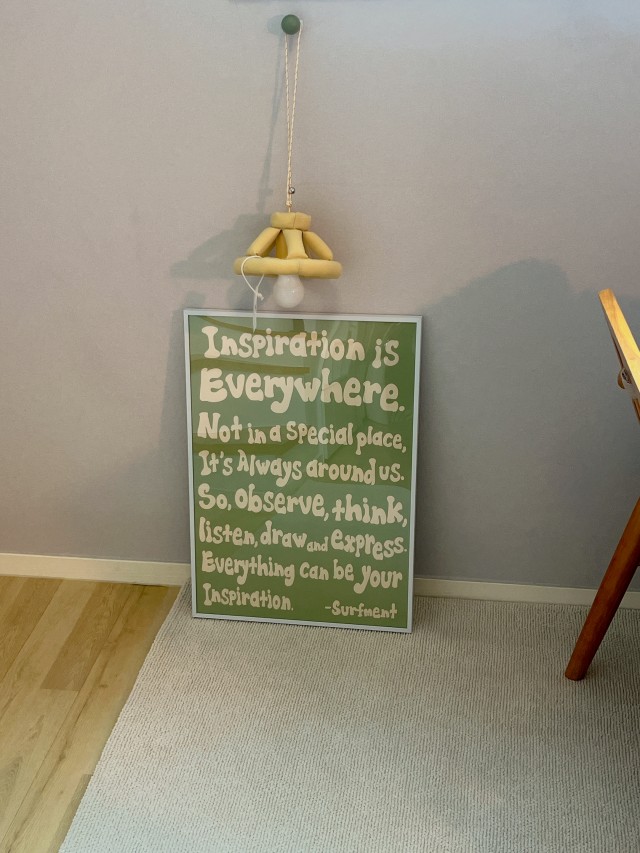 Inspiration is
Everywhere.
Not in a special place,
It's Always around us.
So, observe, think,
listen, draw and express.
Everything can be your
Inspiration. -Surfment